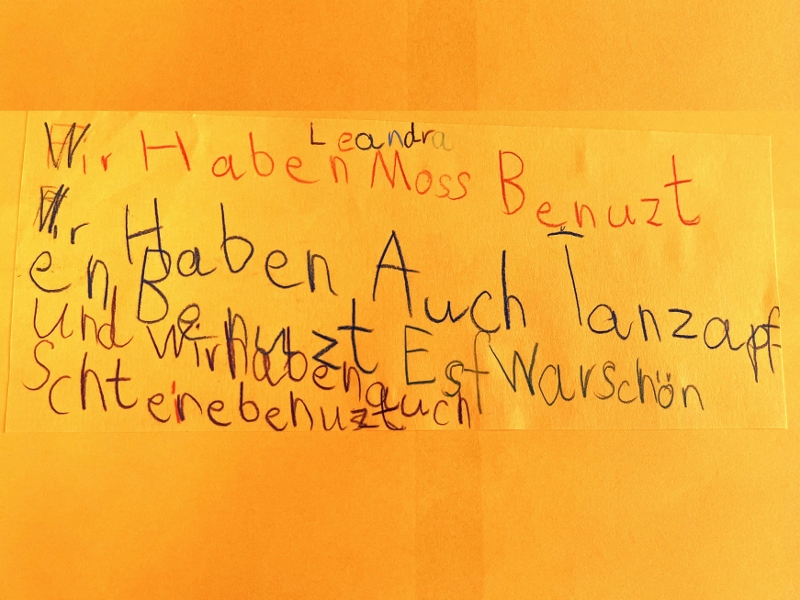 Leandra
Wir Haben Moss Benuzt
Wir Haben Auch Tanzapf
en Benuzt Esf Warschön
und wirhaben auch
Schteinebenuzt